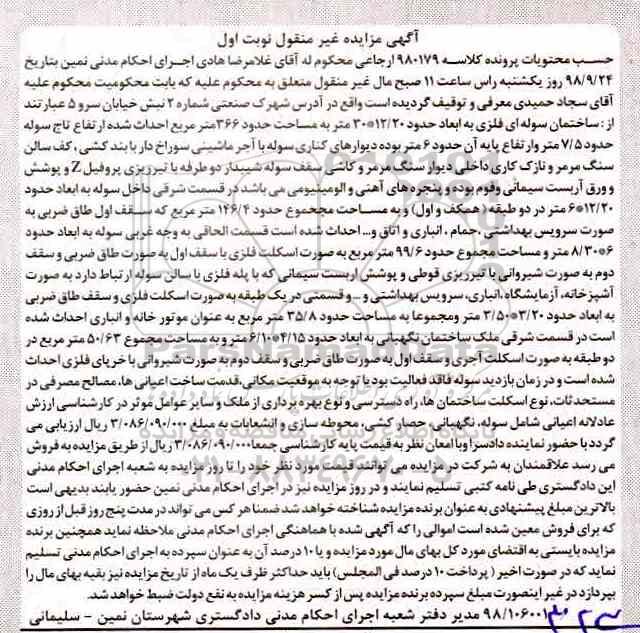 آگهی مزایده غیر منقول نوبت اول
حسب محتویات پرونده کلاسه ۹۸۰۱۷۹ ارجاعی محکوم له آقای غلامرضا هادی اجرای احکام مدنی نمین بتاریخ
۹۸/۹/۲۴ روز یکشنبه راس ساعت ۱۱ صبح مال غیر منقول متعلق به محکوم علیه که بابت محکومیت محکوم علیه
آقای سجاد حمیدی معرفی و توقیف گردیده است واقع در آدرس شهرک صنعتی شماره ۲ نبش خیابان سرو ۵ عبارتند
از : ساختمان سوله ای فلزی به ابعاد حدود ۱۲/۲۰*۳۰ متر به مساحت حدود ۳۶۶متر مربع احداث شده ارتفاع تاج سوله
حدود ۷/۵ متر وارتفاع پایه آن حدود ۶ متر بوده دیوارهای کناری سوله با آجر ماشینی سوراخ دار با بند کشی ، کف سالن
سنگ مرمر و نازک کاری داخلی دیوار سنگ مرمر و کاشی سقف سوله شیبدار دو طرفه با تیرریزی پروفیل Z و پوشش
و ورق آربست سیمانی وفوم بوده و پنجره های آهنی و الومینیومی می باشد در قسمت شرقی داخل سوله به ابعاد حدود
۱۲/۲۰*۶ متر در دو طبقه ( همکف و اول) و به مساحت مجحموع حدود ۱۴۶/۴ متر مربع که سقف اول طاق ضربی به
صورت سرویس بهداشتی ،حمام ، انباری و اتاق و... احداث شده است قسمت الحاقی به وجه غربی سوله به ابعاد حدود
۶*۸/۳۰ متر و مساحت مجموع حدود ۹۹/۶ متر مربع به صورت اسکلت فلزی با سقف اول به صورت طاق ضربی و سقف
دوم به صورت شیروانی با تیرریزی قوطی و پوشش اربست سیمانی که با پله فلزی با سالن سوله ارتباط دارد به صورت
آشپزخانه، آزمایشگاه ،انباری، سرویس بهداشتی و ... و قسمتی در یک طبقه به صورت اسکلت فلزی و سقف طاق ضربی
به ابعاد حدود ۳/۲۰*۳/۵۰ متر ومجموعا به مساحت حدود ۳۵/۸ متر مربع به عنوان موتور خانه و انباری احداث شده
است در قسمت شرقی ملک ساختمان نگهبانی به ابعاد حدود ۴/۱۵*۶/۱۰ متر و به مساحت مجموع ۵۰/۶۳ متر مربع در
دو طبقه به صورت اسکلت آجری و سقف اول به صورت طاق ضربی و سقف دوم به صورت شیروانی با خرپای فلزی احداث
شده است و در زمان بازدید سوله فاقد فعالیت بود با توجه به موقعیت مکانی،قدمت ساخت اعیانی ها، مصالح مصرفی در
مستحدثات، نوع اسکلت ساختمان ها، راه دسترسی و نوع بهره برداری از ملک و سایر عوامل موثر در کارشناسی ارزش
عادلانه اعیانی شامل سوله، نگهبانی، حصار کشی، محوطه سازی و انشعابات به مبلغ ۳/۰۸۶/۰۹۰/۰۰۰ ریال ارزیابی می
گردد با حضور نماینده دادسرا وبا امعان نظر به قیمت پایه کارشناسی جمعا۳/۰۸۶/۰۹۰/۰۰۰ ریال از طریق مزایده به فروش
می رسد علاقمندان به شرکت در مزایده می توانند قیمت مورد نظر خود را تا روز مزایده به شعبه اجرای احکام مدنی
این دادگستری طی نامه کتبی تسلیم نمایند و در روز مزایده نیز در اجرای احکام مدنی نمین حضور یابند بدیهی است
بالاترین مبلغ پیشنهادی به عنوان برنده مزایده شناخته خواهد شد ضمنا هر کس می تواند در مدت پنج روز قبل از روزی
که برای فروش معین شده است اموالی را که آگهی شده با هماهنگی اجرای احکام مدنی ملاحظه نماید همچنین برنده
مزایده بایستی به اقتضای مورد کل بهای مال مورد مزایده و یا ۱۰ درصد آن به عنوان سپرده به اجرای احکام مدنی تسلیم
نماید که در صورت اخیر ( پرداخت ۱۰ درصد فی المجلس) باید حداکثر ظرف یک ماه از تاریخ مزایده نیز بقیه بهای مال را
بپردازد در غیر اینصورت مبلغ سپرده برنده مزایده پس از کسر هزینه مزایده به نفع دولت ضبط خواهد شد.
۹۸/۱۰۶۰۰۱ مدیر دفتر شعبه اجرای احکام مدنی دادگستری شهرستان نمین - سلیمانی